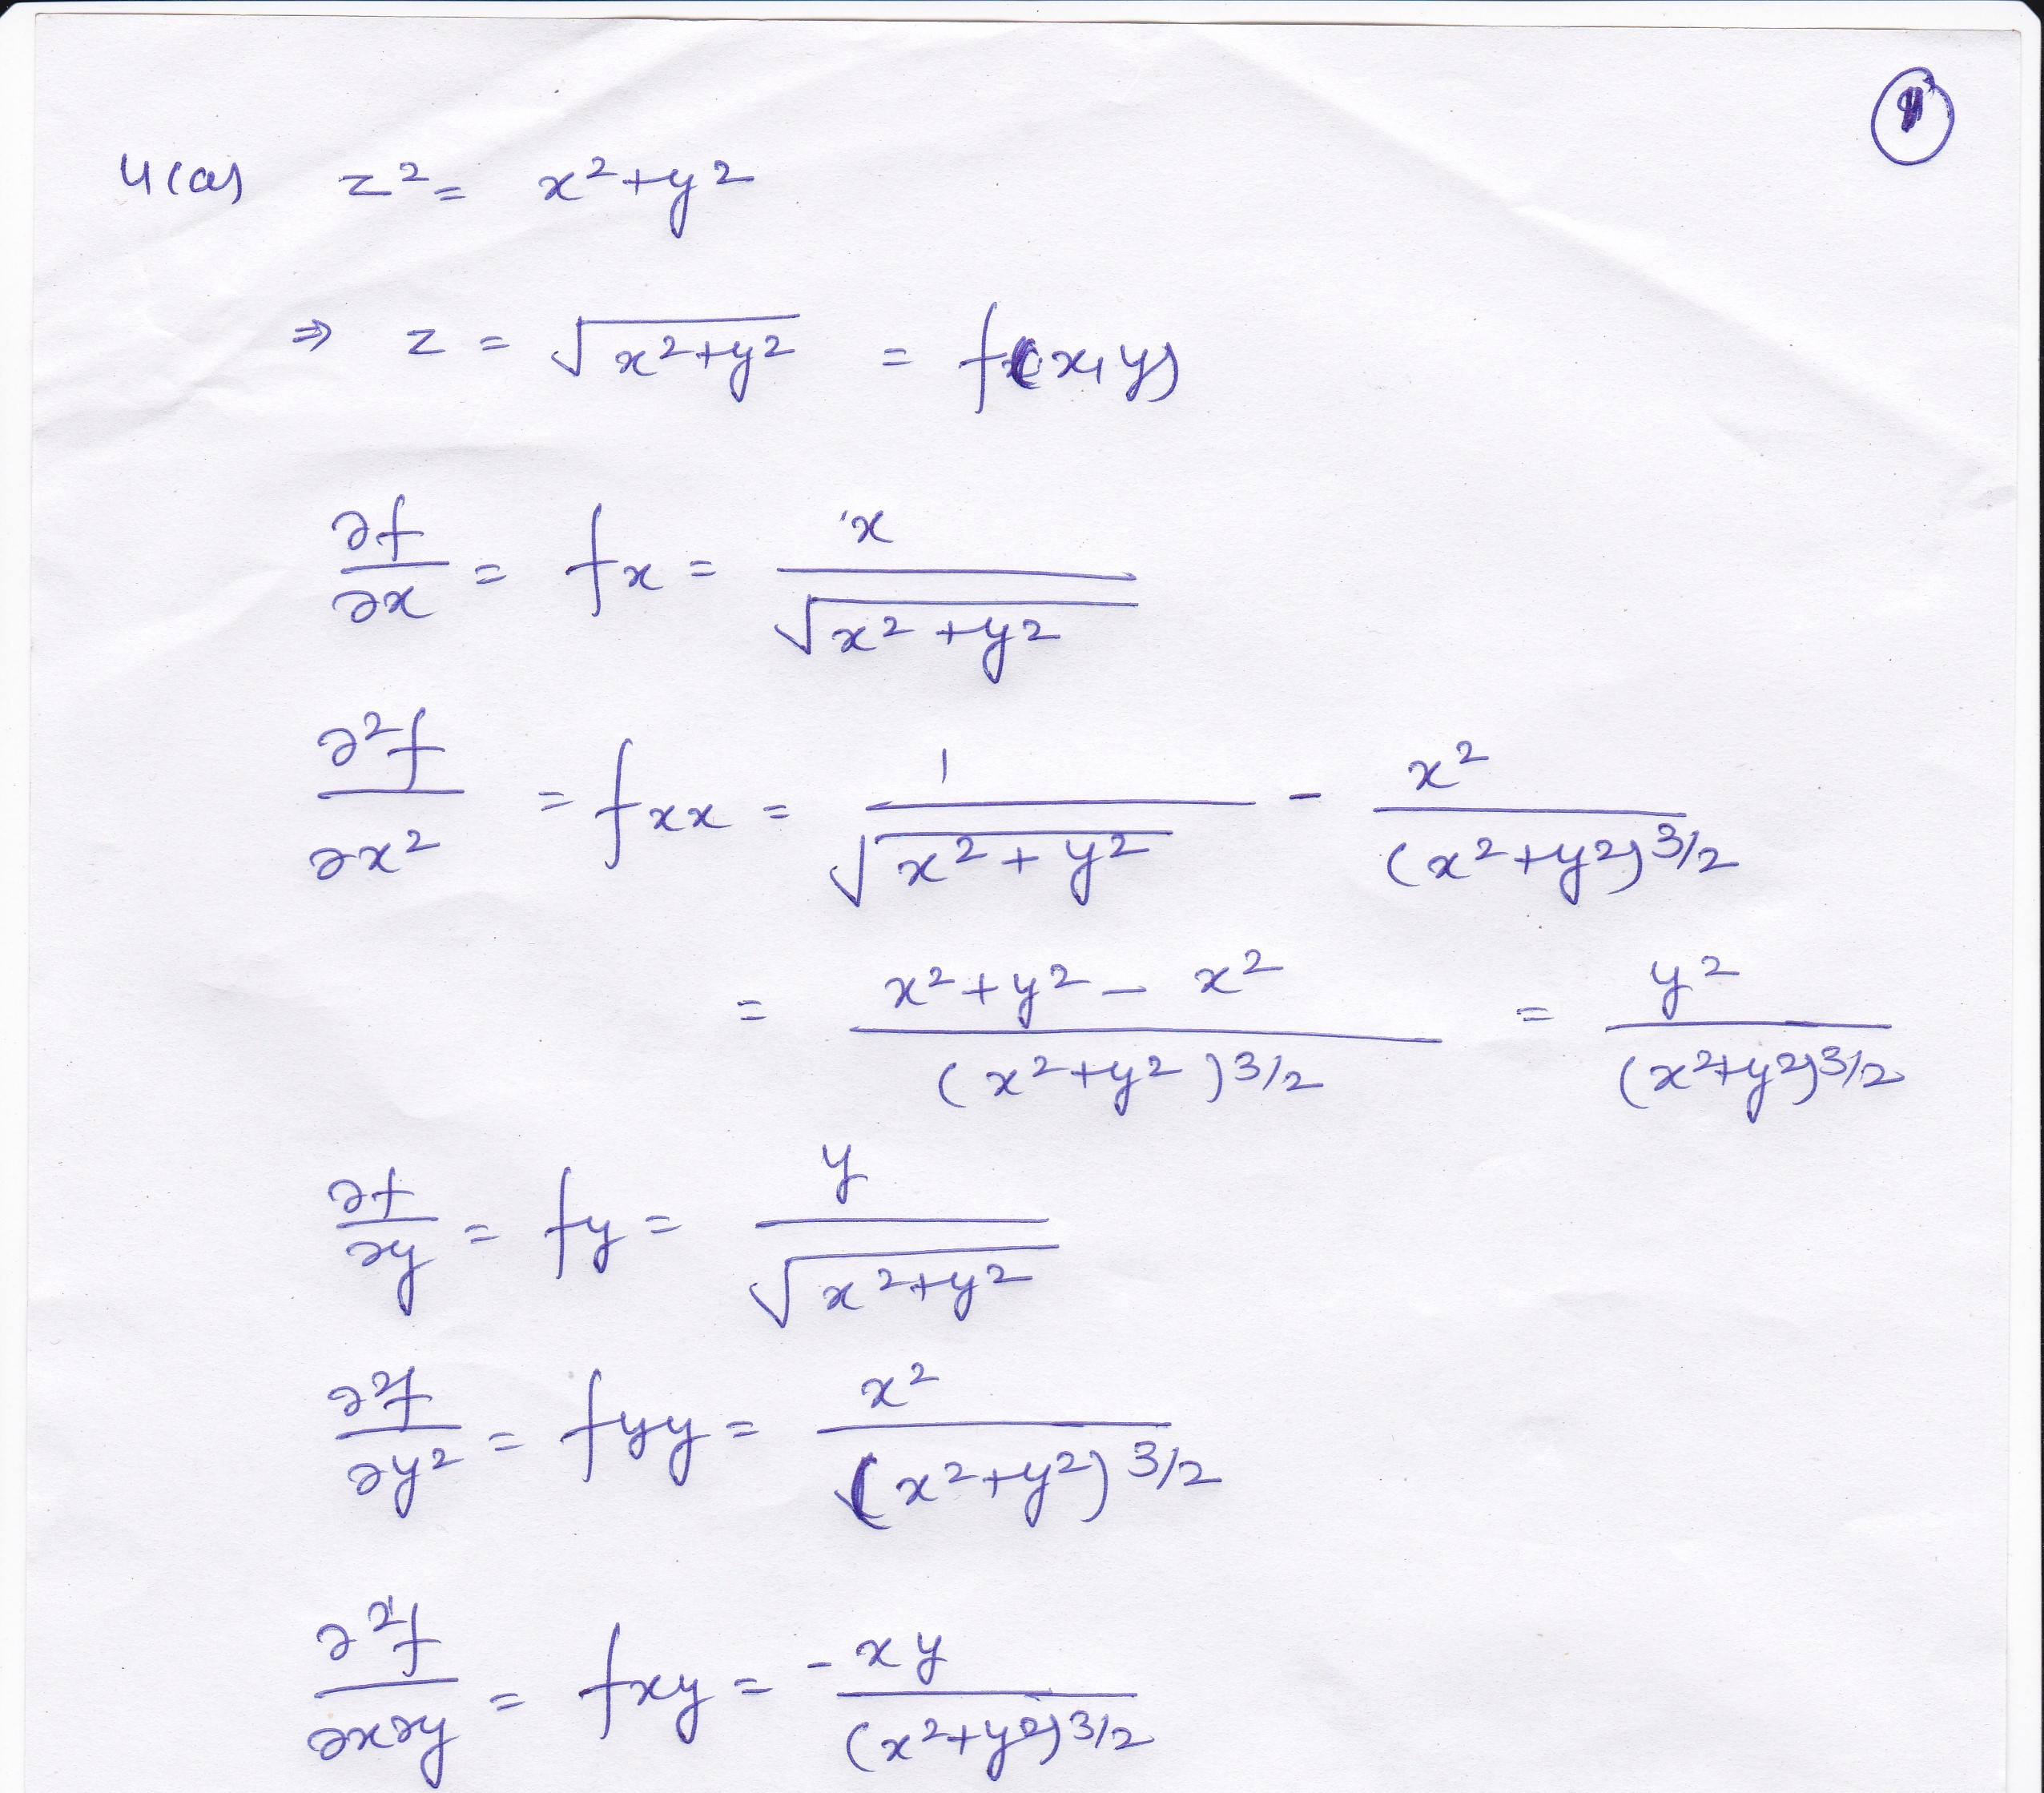 4(a) z² = x²+y²
⇒ z = √(x²+y²) = f(x,y)
∂f/∂x = fx = x/√(x²+y²)
∂²f/∂x² = fxx = 1/√(x²+y²) - x²/(x²+y²)^3/2
= (x²+y² - x²)/(x²+y²)^3/2 = y²/(x²+y²)^3/2
∂f/∂y = fy = y/√(x²+y²)
∂²f/∂y² = fyy = x²/(x²+y²)^3/2
∂²f/∂x∂y = fxy = -xy/(x²+y²)^3/2